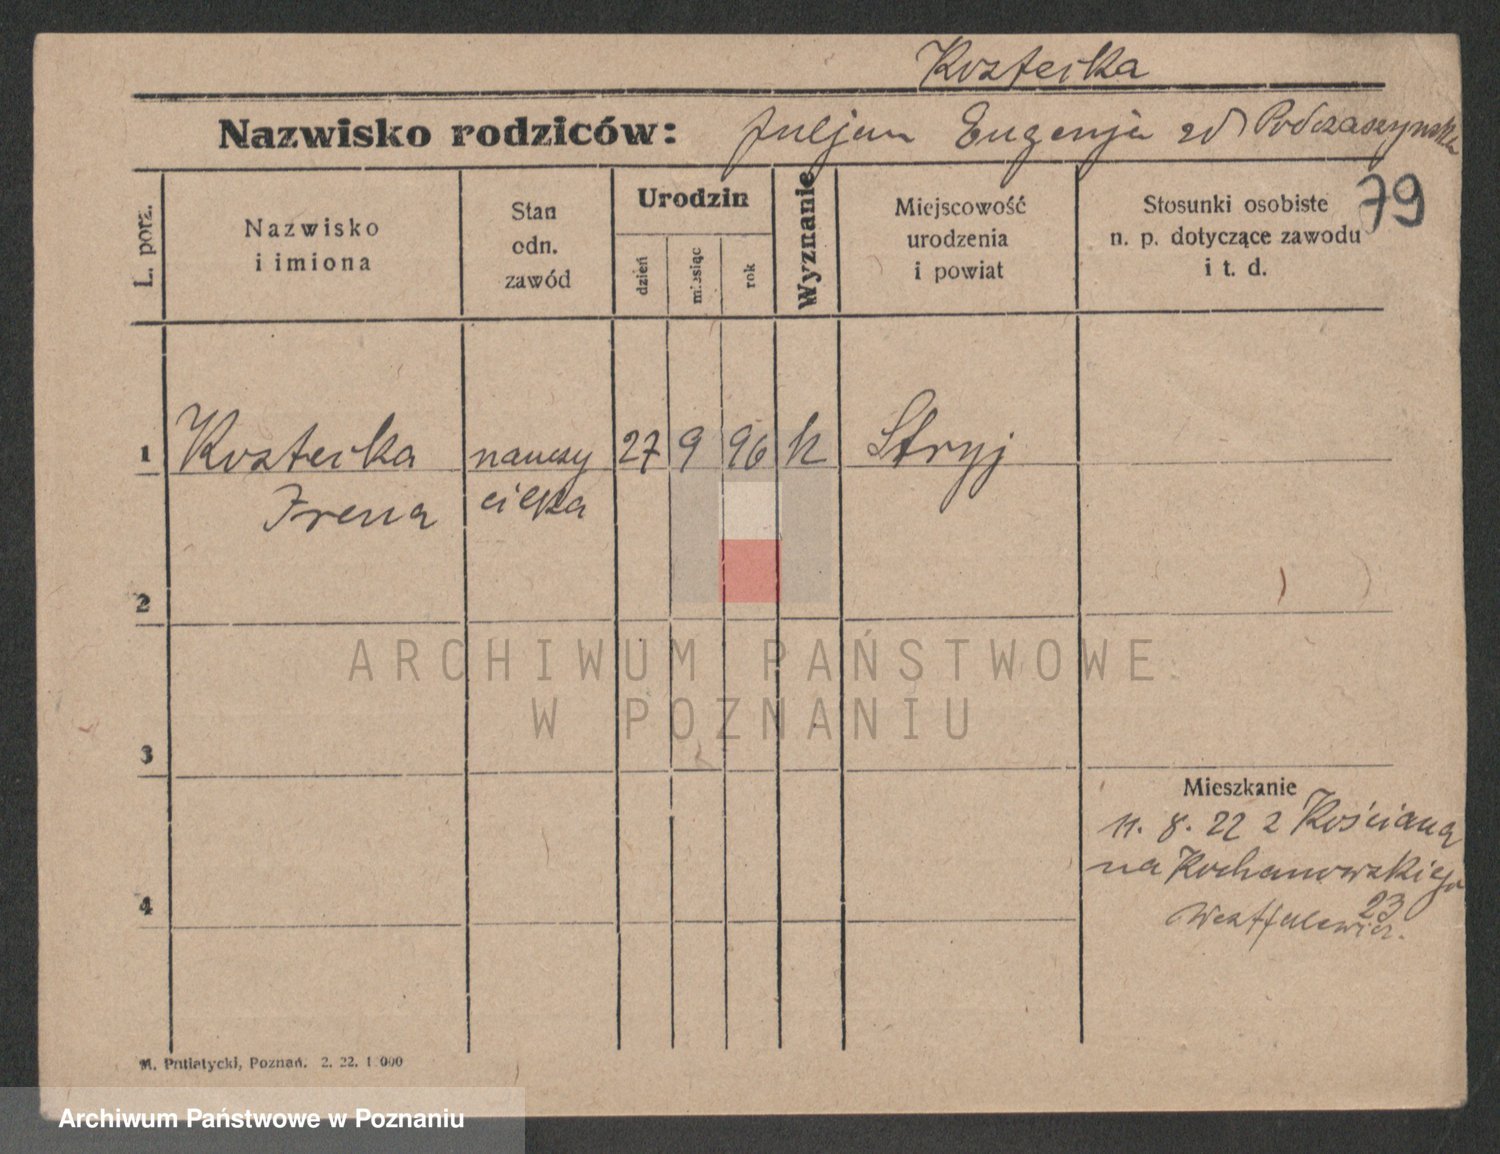 Kosteika
Nazwisko rodziców: Juljan Eugenja zd Podczaszynska
79
L. porz.
Nazwisko
i imiona
Stan
odn.
zawód
Urodzin
dzień
miesiąc
rok
Wyznanie
Miejscowość
urodzenia
i powiat
Stosunki osobiste
n. p. dotyczące zawodu
i t. d.
1 Kosteika nauczy 27 9 96 k Stryj
Irena cielka
2
ARCHIWUM PAŃSTWOWE
W POZNANIU
3
Mieszkanie
11. 8. 22 z Kościana
na Kochanowskiego
23
4
M. Putiatycki, Poznań. 2. 22. 1 000
Archiwum Państwowe w Poznaniu